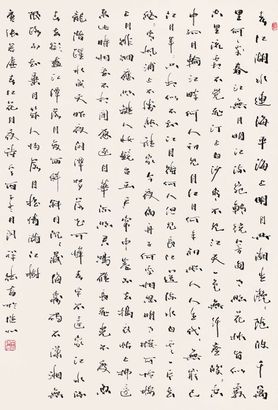 春江潮水連海平海上明月共潮生灩灩隨波千萬
里何處春江無月明江流宛轉繞芳甸月照花林皆似霰
空里流霜不覺飛汀上白沙看不見江天一色無纖塵
江月何年初照人人生代代無窮已
江月年年只相似不知江月待何人但見長江送流水白雲一片去
悠悠青楓浦上不勝愁誰家今夜扁舟子何處相思明月樓可憐
樓上月徘徊應照離人妝鏡臺玉戶簾中卷不去擣衣砧上拂還來
此時相望不相聞願逐月華流照君鴻雁長飛光不度魚
龍潛躍水成文昨夜閒潭夢落花可憐春半不還家江水流
春去欲盡江潭落月復西斜斜月沉沉藏海霧碣石瀟湘無
限路不知乘月幾人歸落月搖情滿江樹
唐張若虛春江花月夜詩